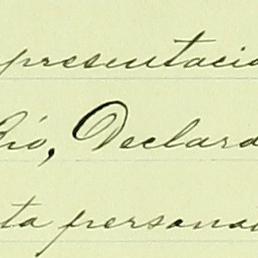 presentació
Rió, Declara
ta persona